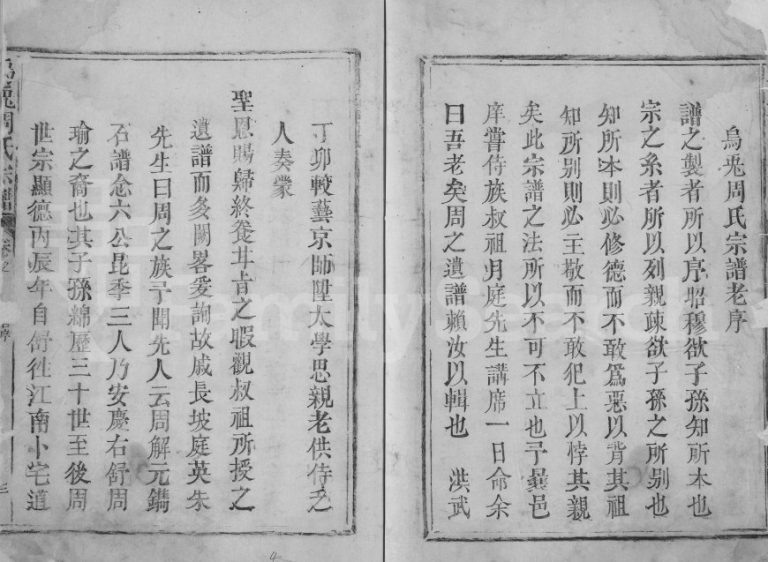 烏兎周氏宗譜老序
譜之製者所以序昭穆欲子孫知所本也
宗之系者所以列親疎欲子孫之所別也
知所本則必修德而不敢為惡以背其祖
知所別則必主敬而不敢犯上以悖其親
矣此宗譜之法所以不可不立也予彛邑
庠嘗侍族叔祖月庭先生講席一日命余
曰吾老矣周之遺譜賴汝以輯也 洪武
丁卯較藝京師陞太學思親老供侍乏
人奏蒙
聖恩賜歸終養廿旨之暇觀叔祖所授之
遺譜而多闕畧爰詢故戚長坡庭英朱
先生曰周之族予聞先人云周解元鐫
石譜念六公昆季三人乃安慶右舒周
瑜之裔也其子孫綿歷三十世至後周
世宗顯德丙辰年自舒徙江南卜宅道
周氏宗譜